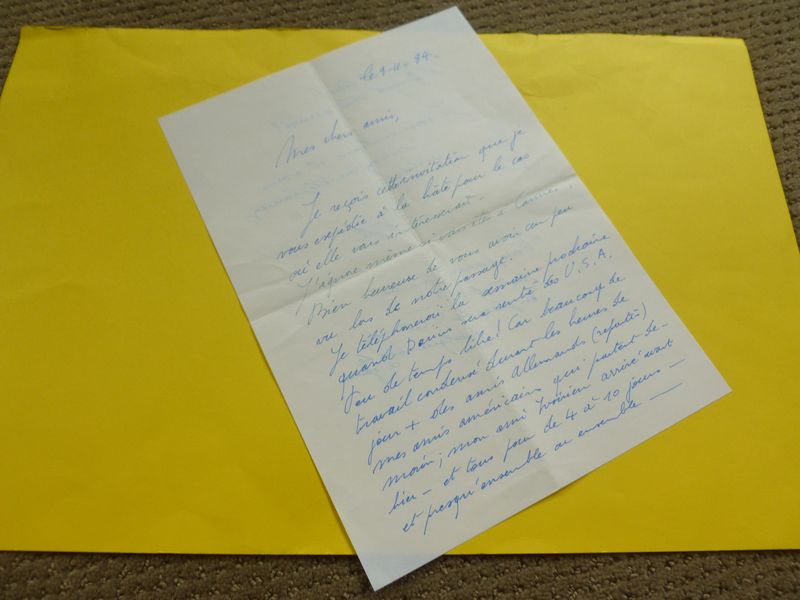 le 9-11-94.
Mes chers amis,
Je reçois cette invitation que je
vous expédie à la hâte pour le cas
où elle vous intéresserait.
J'ignore même si vous êtes à Cannes.
Bien heureuse de vous avoir un peu
vu lors de notre passage.
Je téléphonerai la semaine prochaine
quand Darius sera rentré des U.S.A.
Peu de temps libre! Car beaucoup de
travail condensé durant les heures de
jour + des amis allemands (repartis)
mes amis américains qui partent de-
main; mon ami Ivoirien arrivé avant
hier - et tous pour de 4 à 10 jours —
et presqu'ensemble ou ensemble —